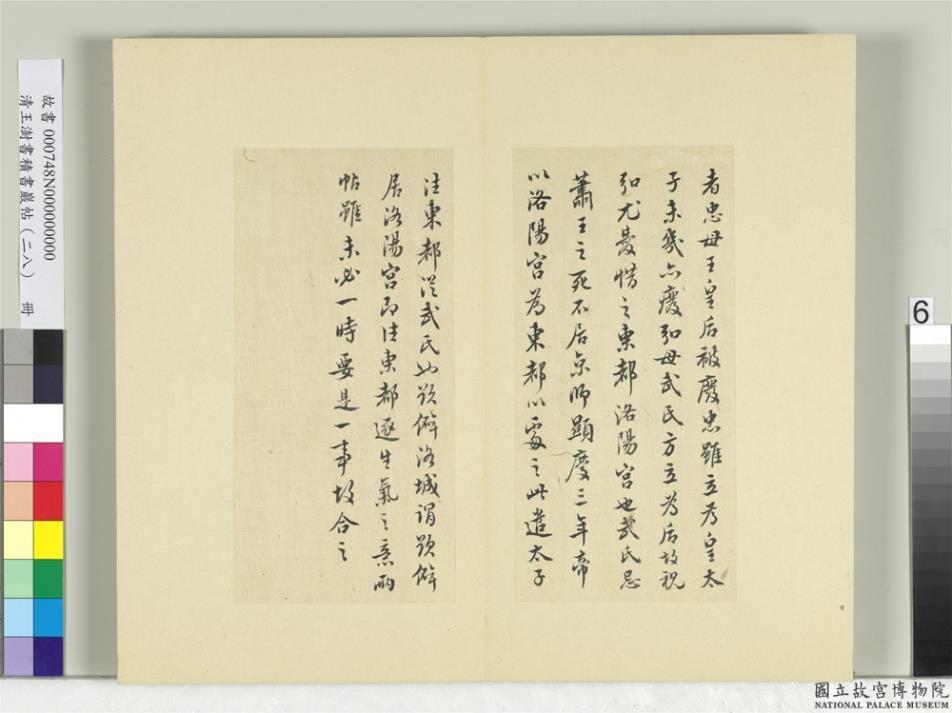 者忠母王皇后被廢忠雖立為皇太
子未幾亦廢弘母武氏方立為后故視
弘尤愛惜之東都洛陽宮也武氏忌
蕭王之死不居京師顯慶三年帝
以洛陽宮為東都以處之此遣太子
往東都從武氏也 洛城謂
居洛陽宮即往東都逐生氣之意兩
帖雖未必一時要是一事故合之
故書 000748N000000000
清王澍書積書巖帖(二八) 冊
6
國立故宮博物院
NATIONAL PALACE MUSEUM